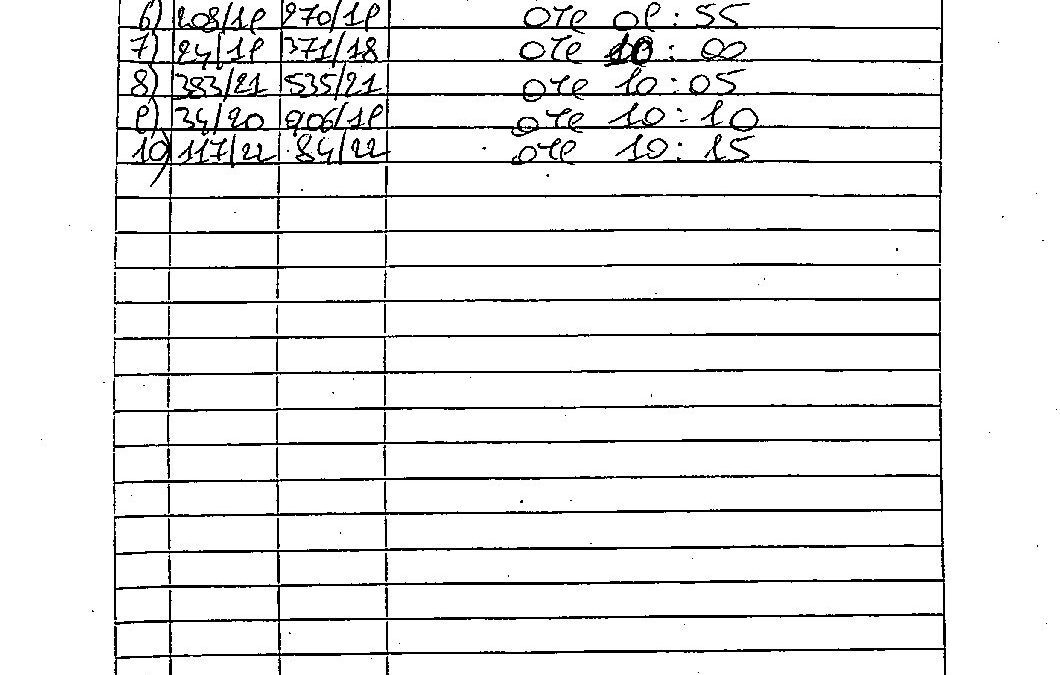 6) 208/19 270/19 ore 09:55
7) 24/19 371/18 ore 10:00
8) 383/21 535/21 ore 10:05
9) 34/20 206/19 ore 10:10
10) 117/22 84/22 ore 10:15